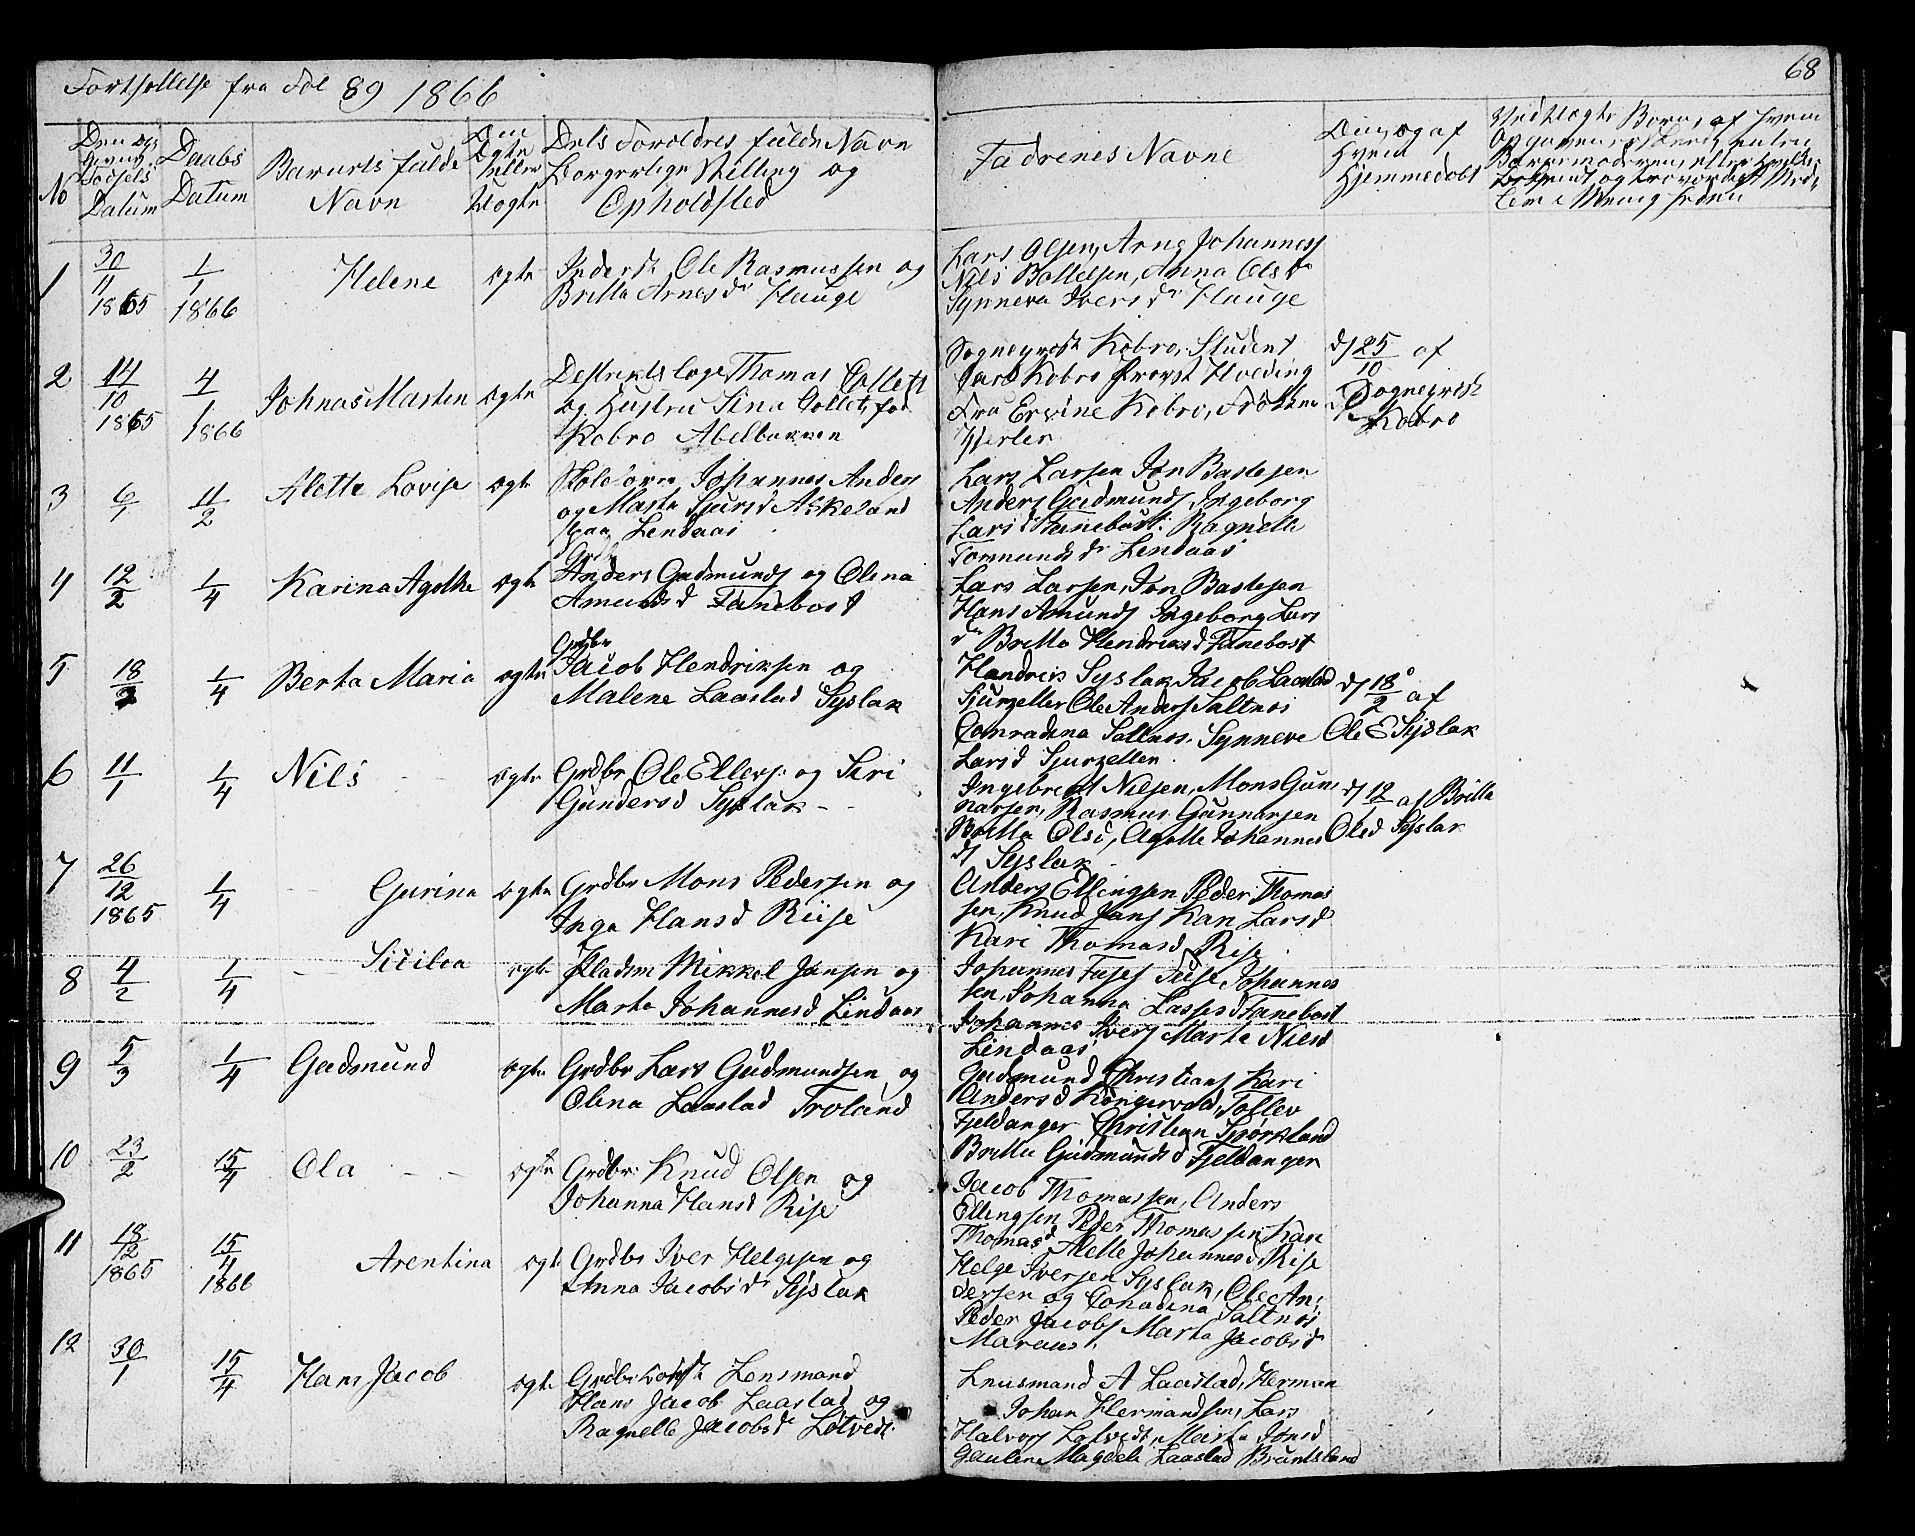 Fortsættelse fra Fol 89 1866
68
No
Den op
givne
Fødsels
Datum
Daabs
Datum
Barnets fulde
Navn
Om
Ægte
eller
Uægte
Dets Forældres fulde Navn
Borgerlige Stilling og
Opholdsted
Fadrenes Navne
Om, og af
Hvem
Hjemmedøbt
Ved Uægte Børn, af hvem
1
30
11
1865
1
1
1866
Helene
ægte
Inderst Ole Rasmussen og
Britta Arnesdr Hauge
Lars Olsen, Arne Johannes
Nils Bottelsen, Anna Olsdr
Synneva Iversdr Hauge
2
14
10
1865
4
1
1866
Johnas Marten
ægte
Destriktslæge Thomas Collett
og Hustru Sina Collett, fød
Kobro Abelbakken
Sogneprest Kobro, Student
Carl Kobro Provst Hveding
Fru Ervine Kobro, Frøken
dj 25 af
10
Sogneprest
Kobro
3
6
1
11
2
Alette Lovise
ægte
Skolelærer Johannes Anders
og Marta Sjursd Askeland
paa Lendaas
Lars Larsen Jon Bastesen
Anders Gudmunds, Ingeborg
Larsdr Tanebust. Ragnelle
Tormundsdr Lendaas
4
12
2
1
4
Karina Agathe
ægte
Grdb
Anders Gudmunds og Olina
Amundsd Fanebost
Lars Larsen, Jon Bastesen
Hans Amunds Ingeborg Lars
dr Britta Hendriksd Fanebost
5
18
2
1
4
Berta Maria
ægte
Grdbr
Jacob Hendriksen og
Malene Laastad Syslak
Hendrik Syslak Jacob Laastad
Sjurseller Ole Anders Saltnes
Conradina Saltnes, Synneve
Larsd Sjurzetten
dj 18 af
2
Ole E Syslak
6
11
1
1
4
Nils
ægte
Grdbr Ole Ellevs: og Siri
Gundersd Syslak
Ingebregt Nilsen, Mons Gun
narsen, Rasmus Gunnarsen
Britta Olsd, Agatte Johannes
d Syslak
dj 12 af Britta
1
Olsd Syslak
7
26
12
1865
1
4
Gurina
ægte
Grdbr Mons Pedersen og
Inga Hansd Riise
Anders Ellingsen Peder Thomas
sen, Knud Jans Kari Larsd
Kari Thomasd Rise
8
4
2
1
4
Sicilea
ægte
Pladsm Mikkel Jansen og
Marta Johannesd Lindaas
Johannes
Johannes
sen, Johanna Lassesd Fanebost
Johannes Ivers Marta Nilsd
Lindaas
9
5
3
1
4
Gudmund
ægte
Grdbr Lars Gudmundsen og
Olina Laastad Troland
Gudmund Christians Kari
Andersd Tollev
Fjeldanger Christian Spørkland
Britta Gudmundsd Fjeldanger
10
23
2
15
4
Ola
ægte
Grdbr Knud Olsen og
Johanna Hansd Rise
Jacob Thomassen, Anders
Ellingsen Peder Thomassen Kari
Thomasd Alette Johannesd Rise
11
18
12
1865
15
4
1866
Arentina
ægt
Grdbr Iver Helgesen og
Anna Jacobsdr Syslak
Helge Iversen Syslak, Ole An
dersen og Conadina Saltnes
Peder Jacobs Marta Jacobsdr
12
30
1
15
4
Hans Jacob
ægte
Grdbr Lensmand
Hans Jacob Laastad og
Ragnelle Jacobsdr Lotvedt
Lensmand A Laastad, Herman
Johan Hermandsen, Lars
Halvors Lotvedt, Marta Jonsd
Magdele Laastad Bruntsland